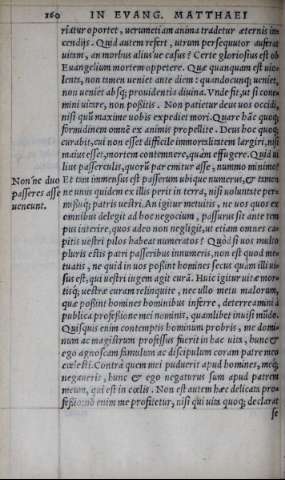 160 IN EVANG. MATTHAEI
riatur oportet, uerumetiam anima tradetur æternis in-
cendijs. Quid autem refert, utrum persequutor auferat
uitam, an morbus aliusue casus? Certe gloriosius est ob
Euangelium mortem oppetere. Quæ quanquam est uio-
lenta, non tamen ueniet ante diem: quandocunq; ueniet,
non ueniet absq; prouidentia diuina. Vnde fit, ut si
mini uiuere, non possitis. Non patietur deus uos occidi,
nisi quū maxime uobis expediet mori. Quare hāc quoq;
formidinem omnē ex animis propellite. Deus hoc quoq;
curabit, cui non esset difficile immortalitatem largiri, nisi
maius esset, mortem contemnere, quàm effugere. Quid ui
lius passerculis, quorū par emitur asse, nummo minimo?
Non'ne duo Et tam immensus est passerum ubique numerus, & tamen
passeres asse ne unus quidem ex illis perit in terra, nisi uoluntate per-
ueneunt. missuq; patris uestri. An igitur metuitis, ne uos quos ex
omnibus delegit ad hoc negocium, passurus sit ante tem
pus interire, quos adeo non negligit, ut etiam omnes ca-
pitis uestri pilos habeat numeratos? Quòd si uos multo
pluris estis patri passeribus innumeris, non est quod me-
tuatis, ne quid in uos possint homines secus quàm illi ui-
sus est, qui uestri iugem agit curā. Huic igitur uitæ mor-
tisq; uestræ curam relinquite, nec ullo metu malorum,
quæ possint homines hominibus inferre, deterreamini à
publica professione mei nominis, quamlibet inuiso mūdo.
Quisquis enim contemptis hominum probris, me domi-
num ac magistrum professus fuerit in hac uita, hunc &
ego agnoscam famulum ac discipulum coram patre meo
cœlesti. Contrà quem mei puduerit apud homines, meq;
negauerit, hunc & ego negaturus sum apud patrem
meum, qui est in cœlis. Non est autem hæc delicata pro-
fessio: nō enim me profitetur, nisi qui uita quoq; declarat
se